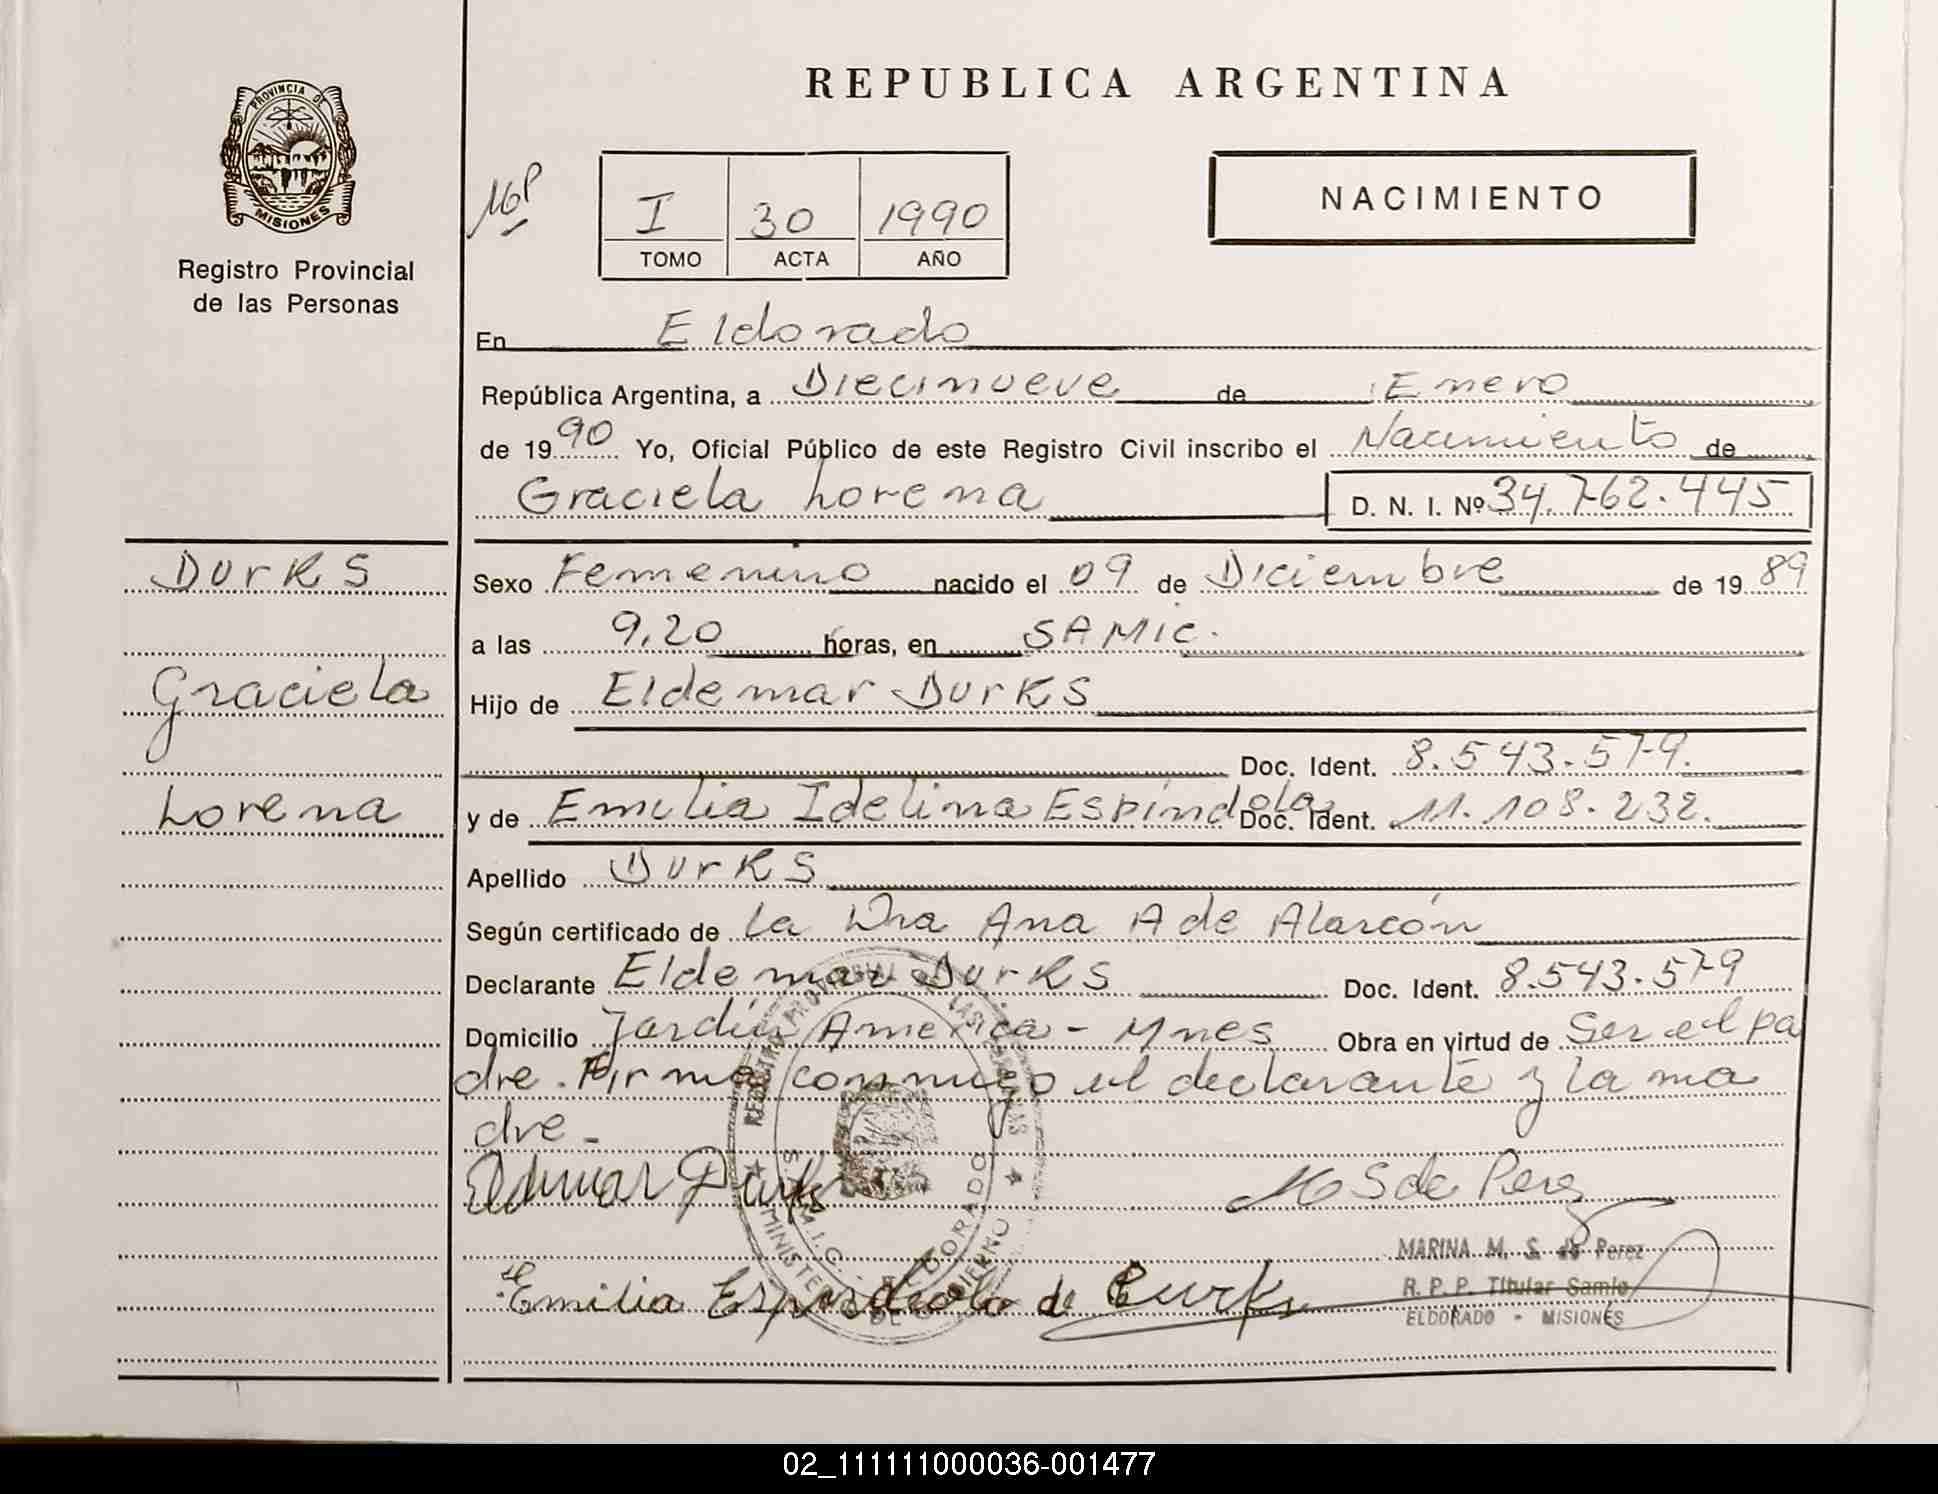 PROVINCIA DE
MISIONES
Registro Provincial
de las Personas
REPUBLICA ARGENTINA
I 30 1990
TOMO ACTA AÑO
NACIMIENTO
En Eldorado
República Argentina, a Diecinueve de Enero
de 1990 Yo, Oficial Público de este Registro Civil inscribo el Nacimiento de
Graciela Lorena D. N. I. Nº 34.762.445
Durks
Graciela
Lorena
Sexo Femenino nacido el 09 de Diciembre de 1989
a las 9,20 horas, en SAMIC.
Hijo de Eldemar Durks
Doc. Ident. 8.543.579.
y de Emilia Idelina Espíndola Doc. Ident. 11.108.232.
Apellido Durks
Según certificado de la Dra Ana A de Alarcón
Declarante Eldemar Durks Doc. Ident. 8.543.579
Domicilio Jardín América - Mnes Obra en virtud de Ser el pa
dre. Firma conmigo el declarante y la ma
dre -
REGISTRO PROVINCIAL DE LAS PERSONAS
MINISTERIO DE GOBIERNO
S.A.M.I.C. ELDORADO
MS de Perez
MARINA M. S. de Perez
R. P. P. Titular Samic
ELDORADO - MISIONES
Emilia Espindola de Durks
02_111111000036-001477